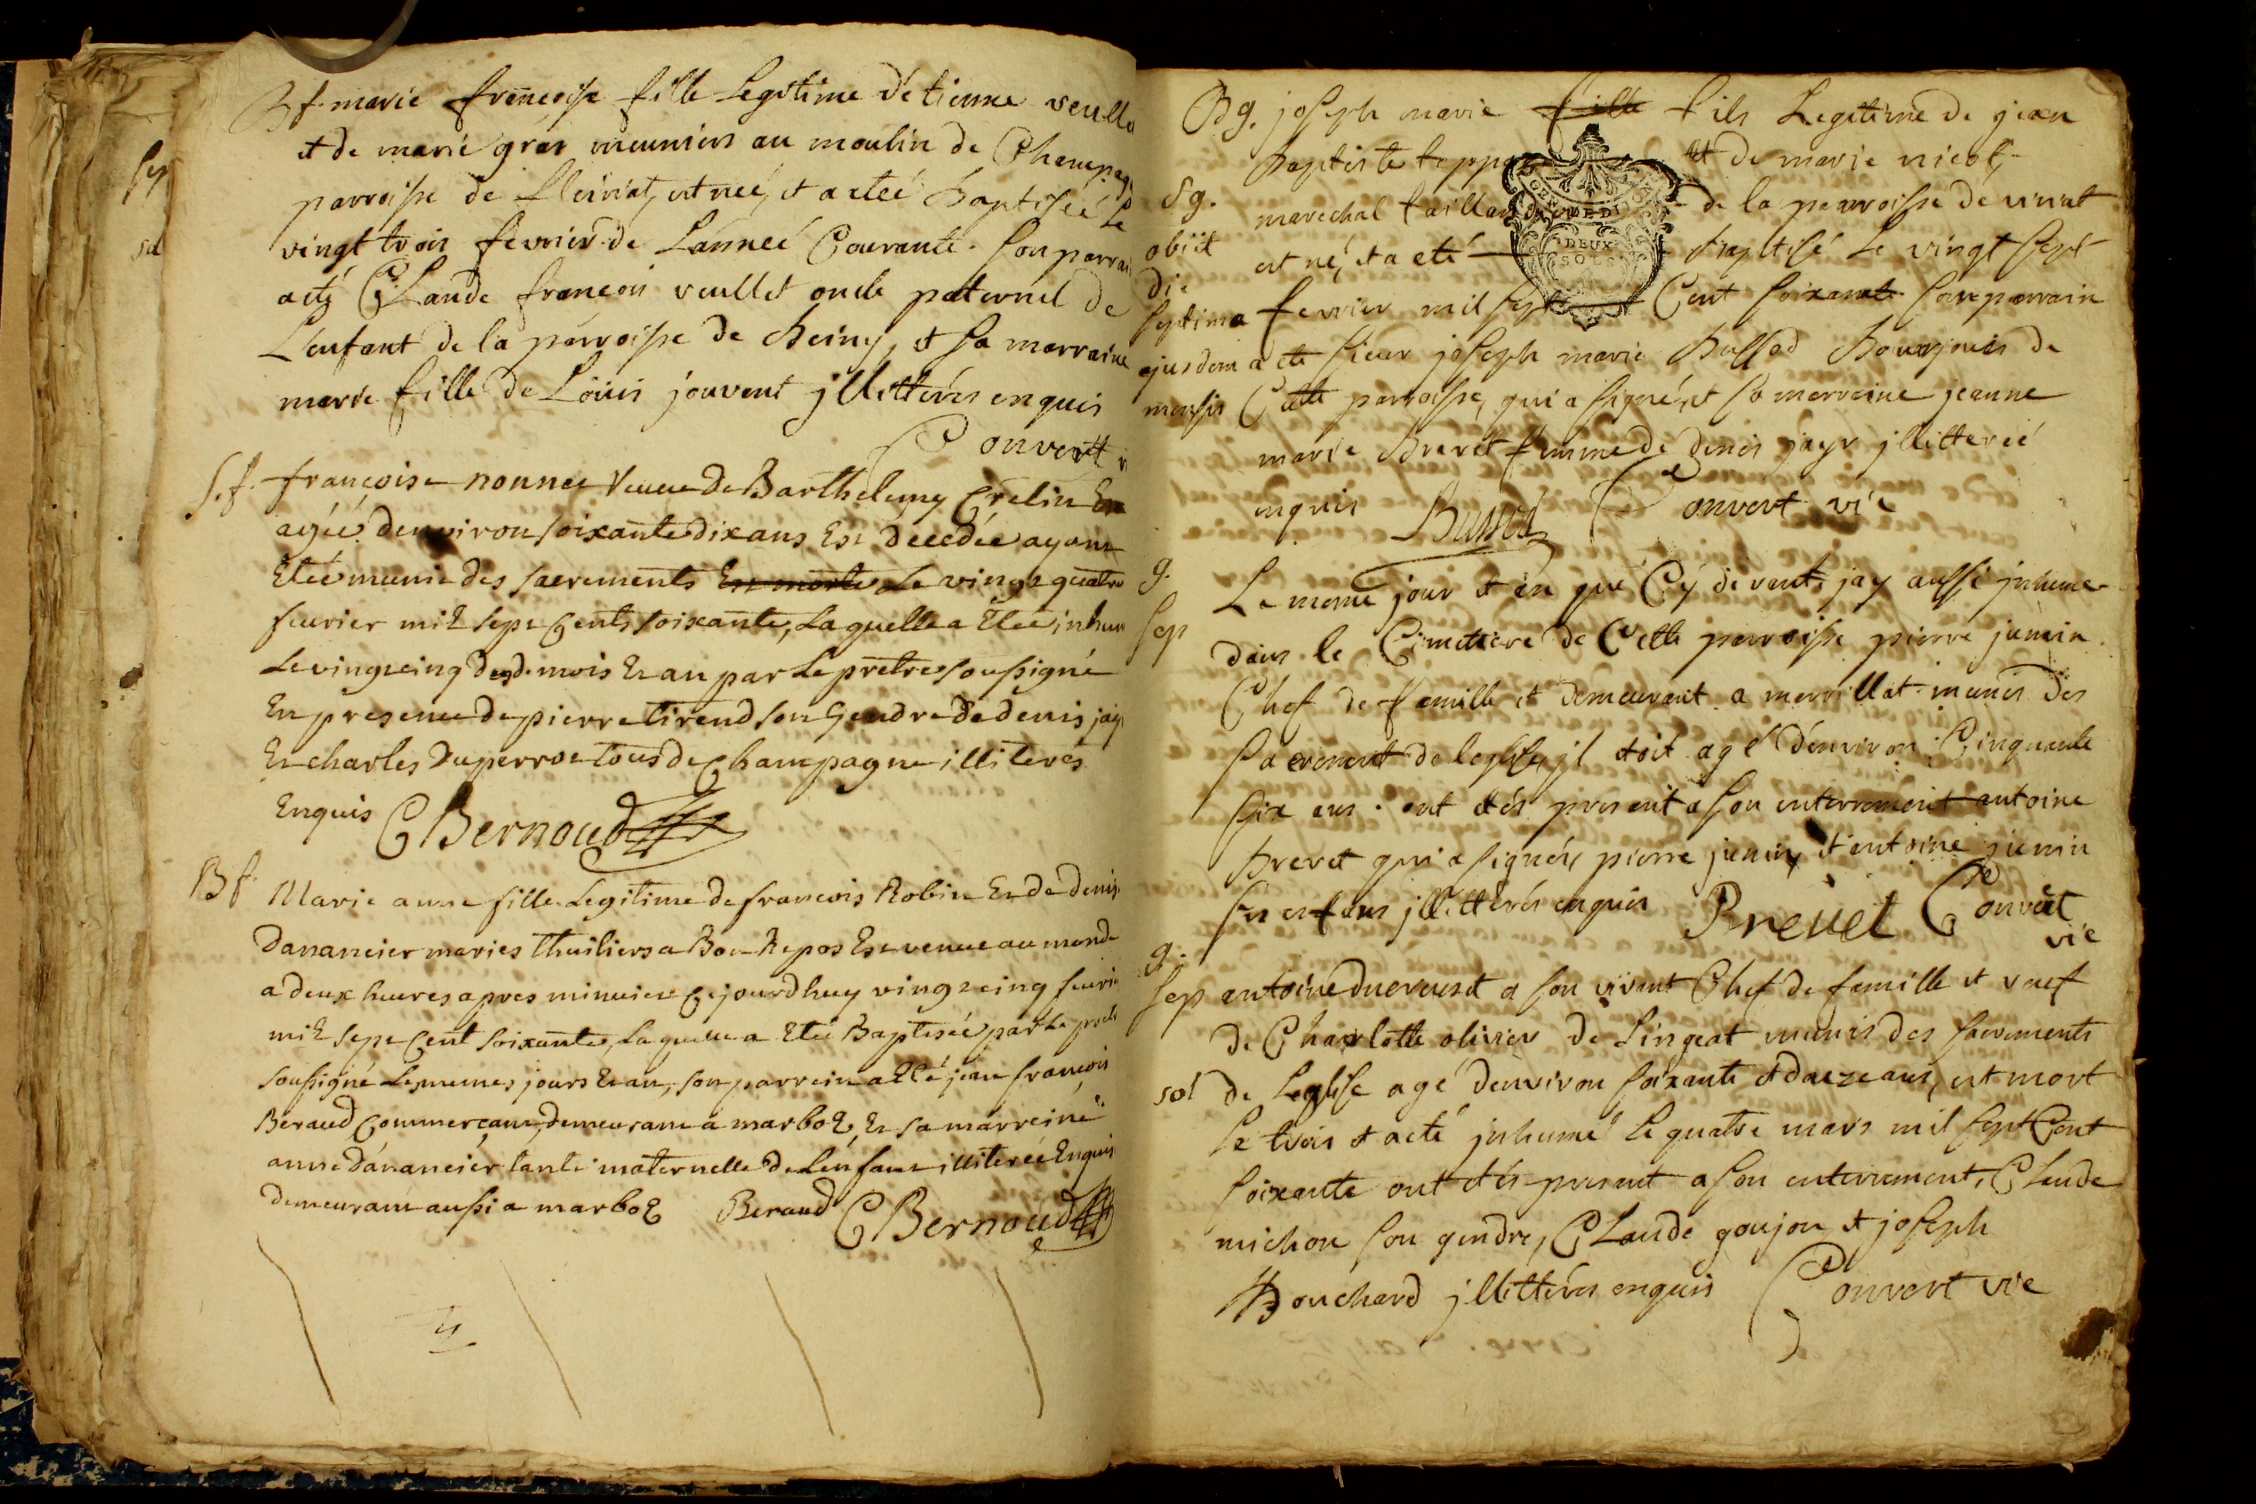 Bf. marie françoise fille Legitime d'étienne veulle
et de marie gras meuniers au moulin de Champag
parroisse de fleiriat, est neé, et a eteé baptiseé Le
vingt trois fevrier de L'anneé Courante. Son parrai
a eté Claude françois veullet oncle paternel de
L'enfant de la parroisse de beiny, et Sa marraine
marie fille de Loüis jouvent jllitterés enquis
Convert
S.f. françoise nonnee veuve de Barthelemy Crelin Est
ageé denviron soixante dix ans Est decedée ayant
Eteé munie des sacrements Est morte Le vingt quatre
feurier mil sept Cents soixante, Laquelle a Eteé inhum
Le vingt cinq desd. mois Et an par Le prêtre soussigné
En presence de pierre tirend son Gendre de denis jay
Et charles duperroe tous de Champagne illiterés
Enquis CBernoud
Bf. Marie anne fille Legitime de francois Robin Et de denis
Danancier mariés thuiliers a Bon Repos Est venue au monde
a deux heures apres minuict Cejourdhuy vingt cinq feuri
mil sept Cent soixante, Laquelle a Eteé Baptiseé par Le
soussigné Les memes jours Et an, son parrein a Eté jean françois
Beraud Commerçant, demeurant a marboz, Et sa marreine
anne danancier tante maternelle de Lenfant illitereé Enquis
demeurant aussi a marboz Beraud CBernoud
Sep
Bg. joseph marie fille fils Legitime de jean
baptiste et de marie nicol,
Sg. marechal taillandier de la parroisse de viriat
obiit est né, et a eté baptisé Le vingt sept
Die
Septima fevrier mil sept Cent soixante son parrain
ejusdem a eté sieur joseph marie bussod bourgeois de
mensis Cette parroisse, qui a signé, et sa marraine jeanne
marie brevet femme de denis jayr jllittereé
enquis Bussod Convert vic
g. Le meme jour et an que Cy devant, jay aussi jnhumé
Sep dans le Cimetiere de Cette parroisse pierre junin
Chef de famille et demeurant a merillat munis des
sacrement de leglise, jl etoit agé d'environ Cinquante
six ans. ont etés present a son enterrement antoine
brevet qui a signé, pierre junin, et antoine junin
ses enfans jllitterés enquis Brevet Convert
vic
g.
Sep antoine duervuest a son vivant Chef de famille et veuf
de Charlotte olivier de Lingeat munis des sacrements
sol de Leglise agé denviron soixante et douze ans, est mort
Le trois et a eté jnhumé Le quatre mars mil sept Cent
soixante ont etés present a son enterrement, Claude
michon son gendre, Claude goujon et joseph
bouchard jllitterés enquis Convert vic
DEUX
SOLS